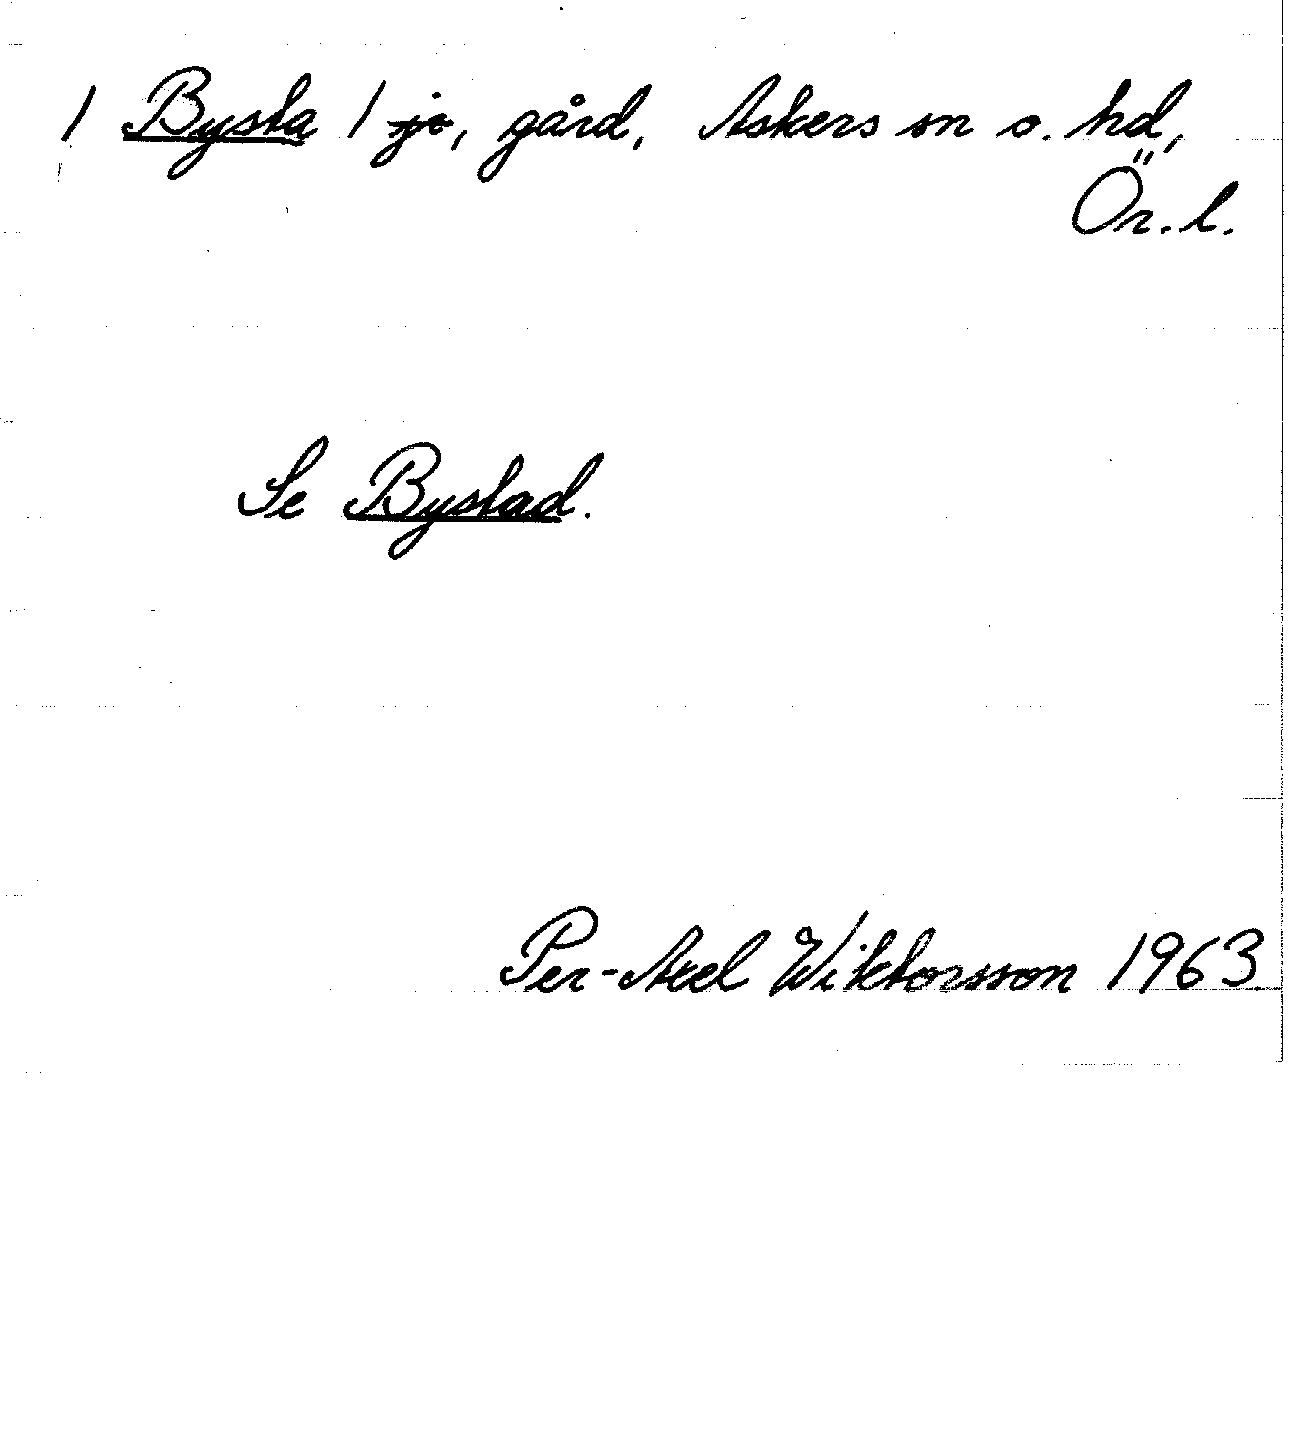 / Bysta / jo, gård, Askers sn o. hd,
Ör. l.
Se Bystad.
Per-Axel Wiktorsson 1963